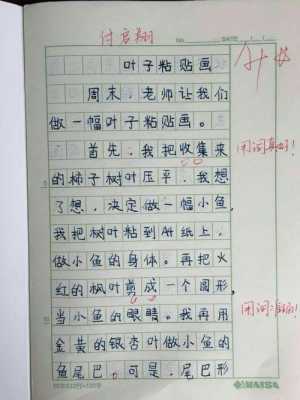 付启翔
No. DATE
叶子粘贴画
周末,老师让我们
做一幅叶子粘贴画。
首先,我把收集来
的柿子树叶压平,我想
了想,决定做一幅小鱼,
我把树叶粘到A4纸上,
做小鱼的身体。再把火
红的枫叶剪成一个圆形,
当小鱼的眼睛。我再用
金黄的银杏叶做小鱼的
鱼尾巴。可是,尾巴形